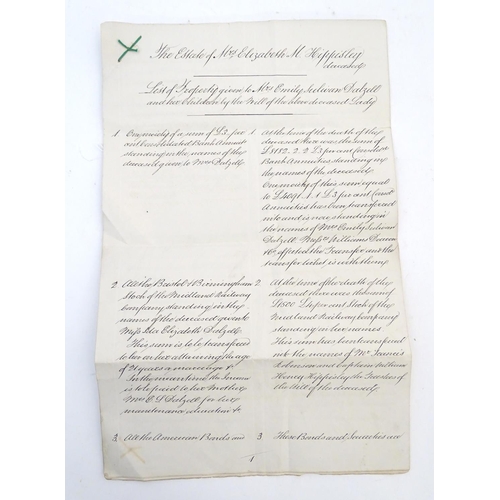 The Estate of Mrs Elizabeth M. Hippisley
deceased
List of Property given to Mrs Emily Dalzell
and her children by the Will of the above deceased Lady
1 One moiety of a sum of £3 per
cent Consolidated Bank Annuities
standing in the names of the
deceased given to Mrs Dalzell
1 At the time of the death of the
deceased there was the sum of
£8182. 2. 2 £3 per cent Consolid
Bank Annuities standing in
the names of the deceased
One moiety of this sum equal
to £4091. 1. 1 £3 per cent Cons
Annuities has been transferred
into and is now standing in
the names of Mrs Emily
Dalzell Messrs Williams Deacon
effected the Transfer and the
transfer ticket is with them
2 All the Bristol & Birmingham
Stock of the Midland Railway
Company standing in the
names of the deceased given to
Miss Elizabeth Dalzell
This sum is to be transferred
to her on her attaining the age
of 21 years or marriage &
In the meantime the Income
is to be paid to her Mother
Mrs E. Dalzell for her
maintenance education &
2 At the time of the death of the
deceased there was the sum of
£1500 per cent Stock of the
Midland Railway Company
standing in her names
This sum has been transferred
into the names of Mr Francis
Robinson and Captain William
Henry Hippisley the Trustees of
the Will of the deceased
3 All the American Bonds and
3 These Bonds and Securities are
1